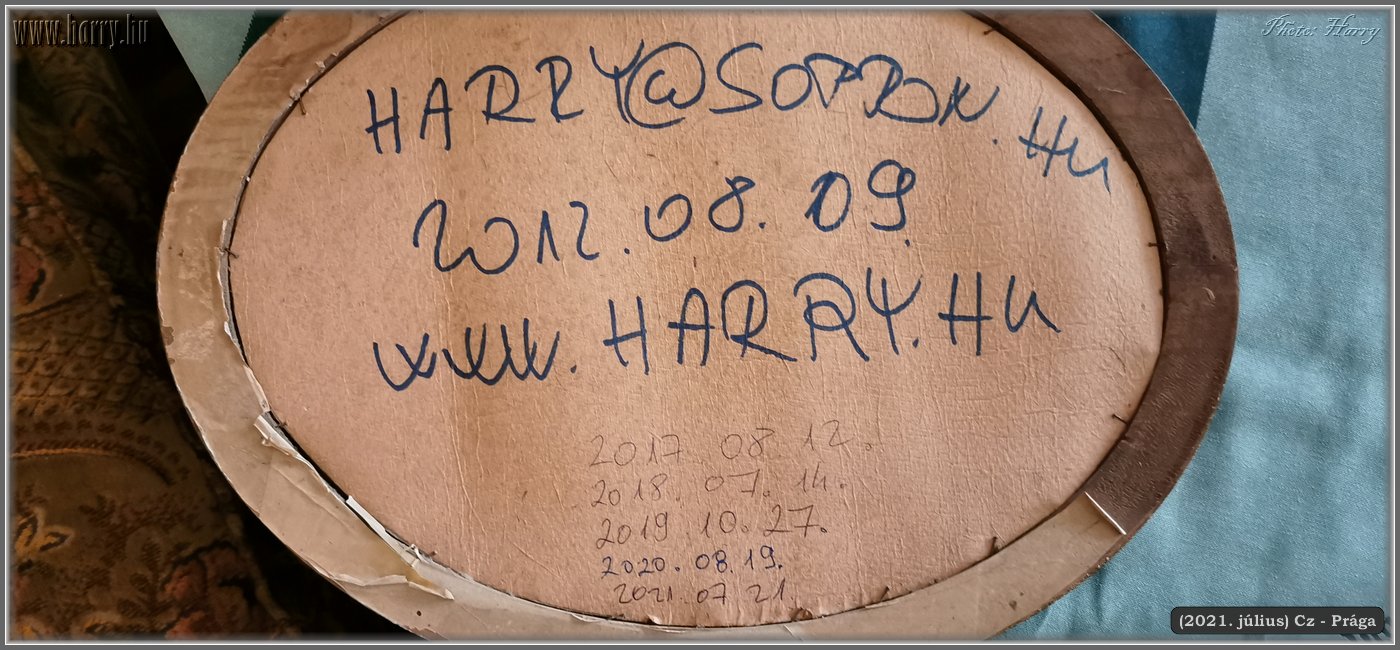 www.harry.hu
Photo: Harry
HARRY@SOPRON.HU
2012.08.09.
WWW.HARRY.HU
2017 08 12.
2018. 07. 14.
2019 10. 27.
2020. 08. 19.
2021. 07 21.
(2021. július) Cz - Prága